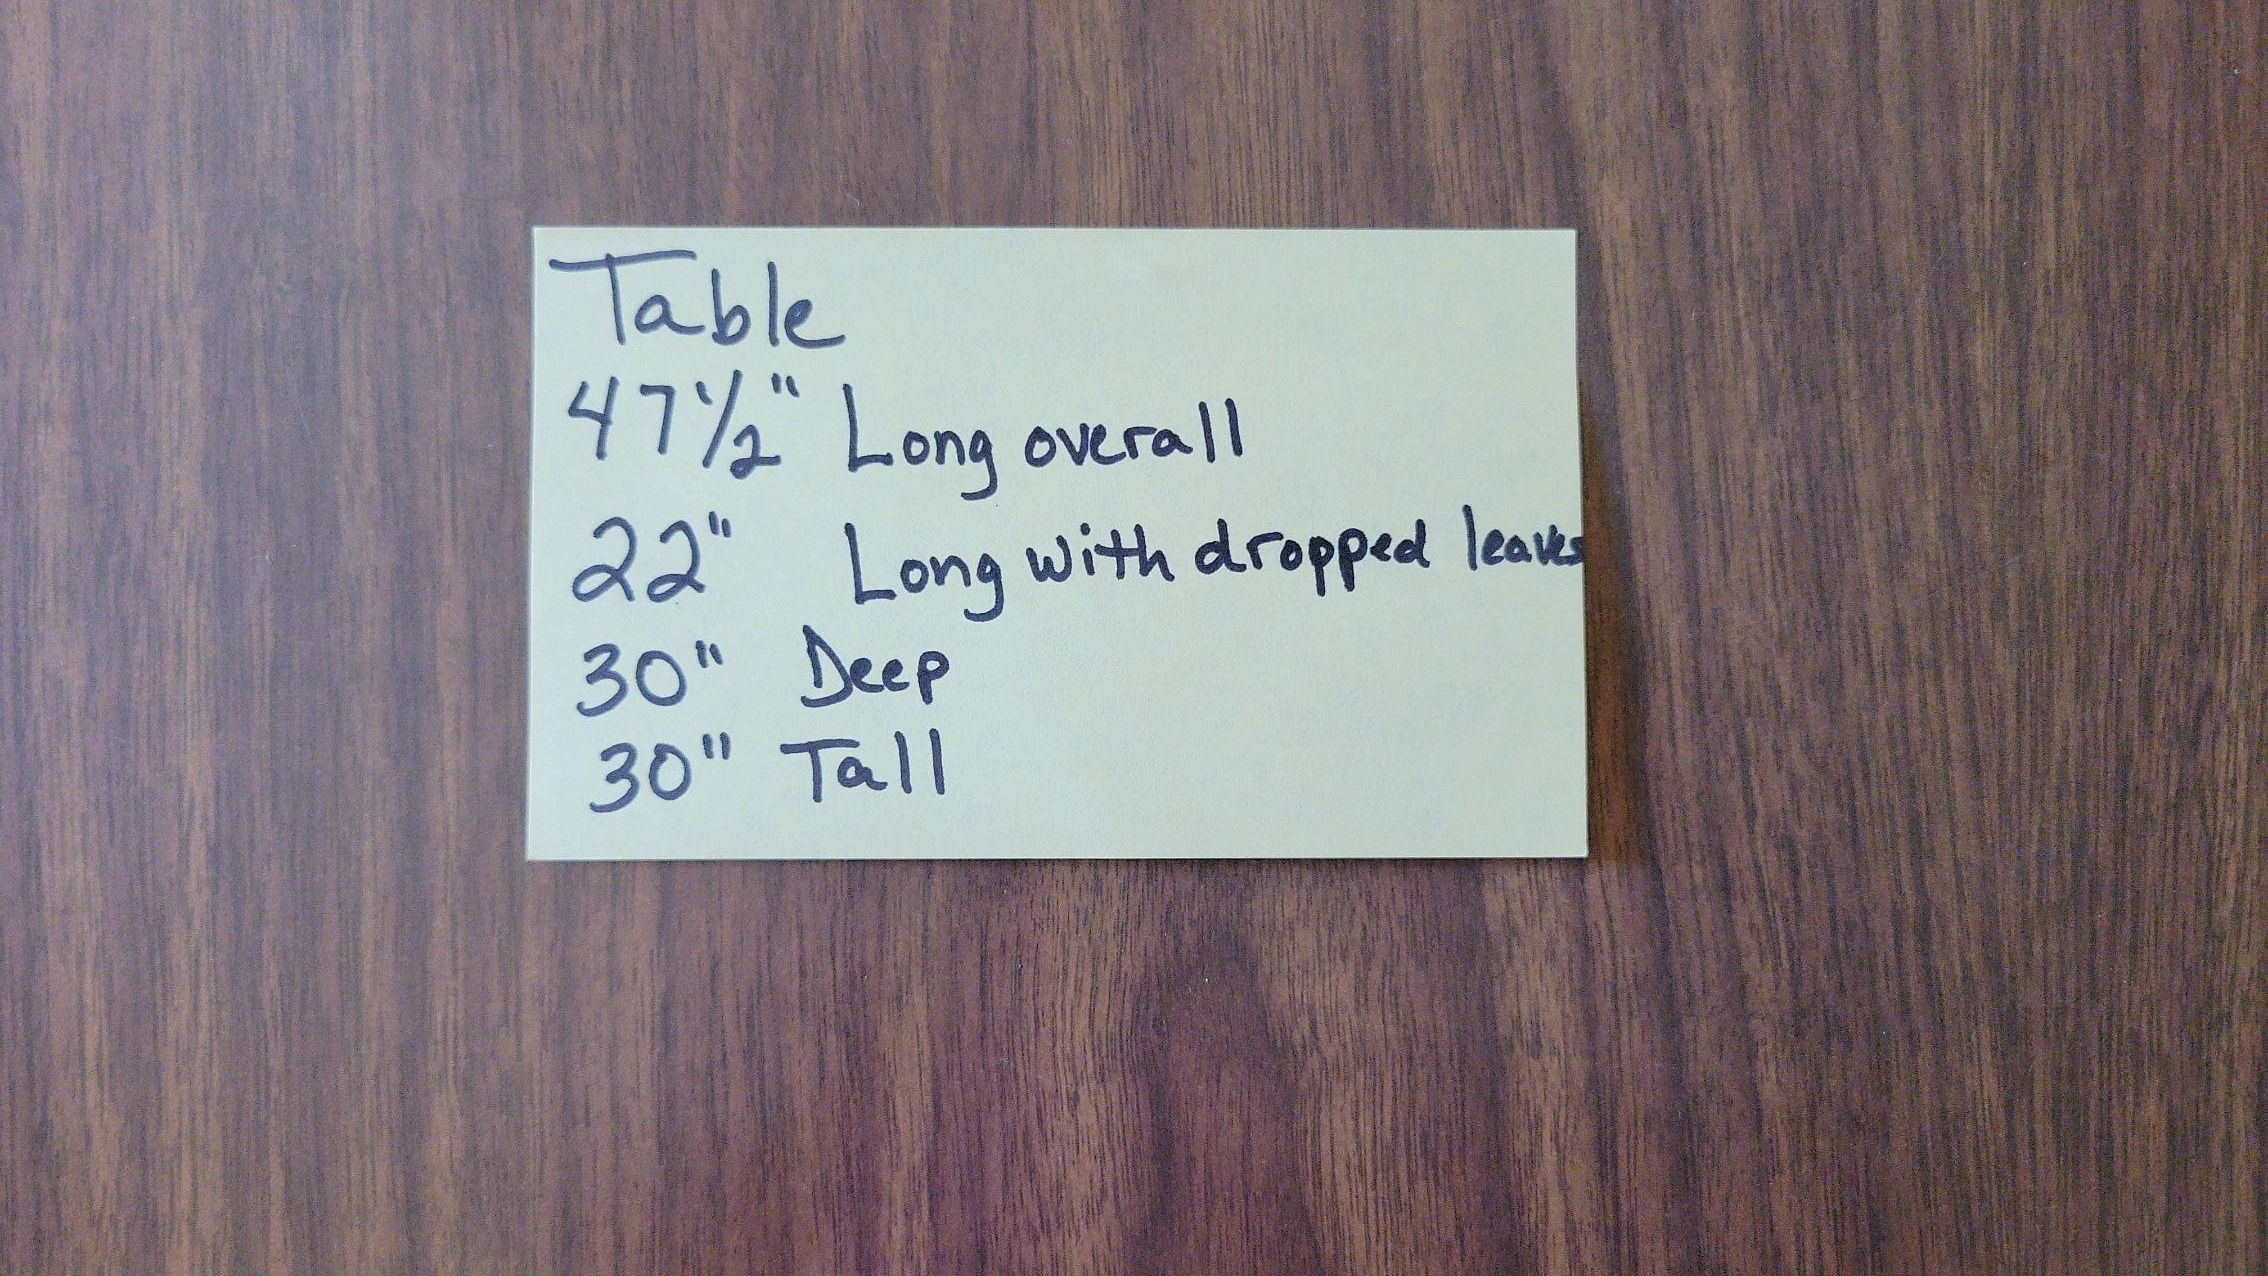 Table
47 1/2" Long overall
22" Long with dropped leaves
30" Deep
30" Tall